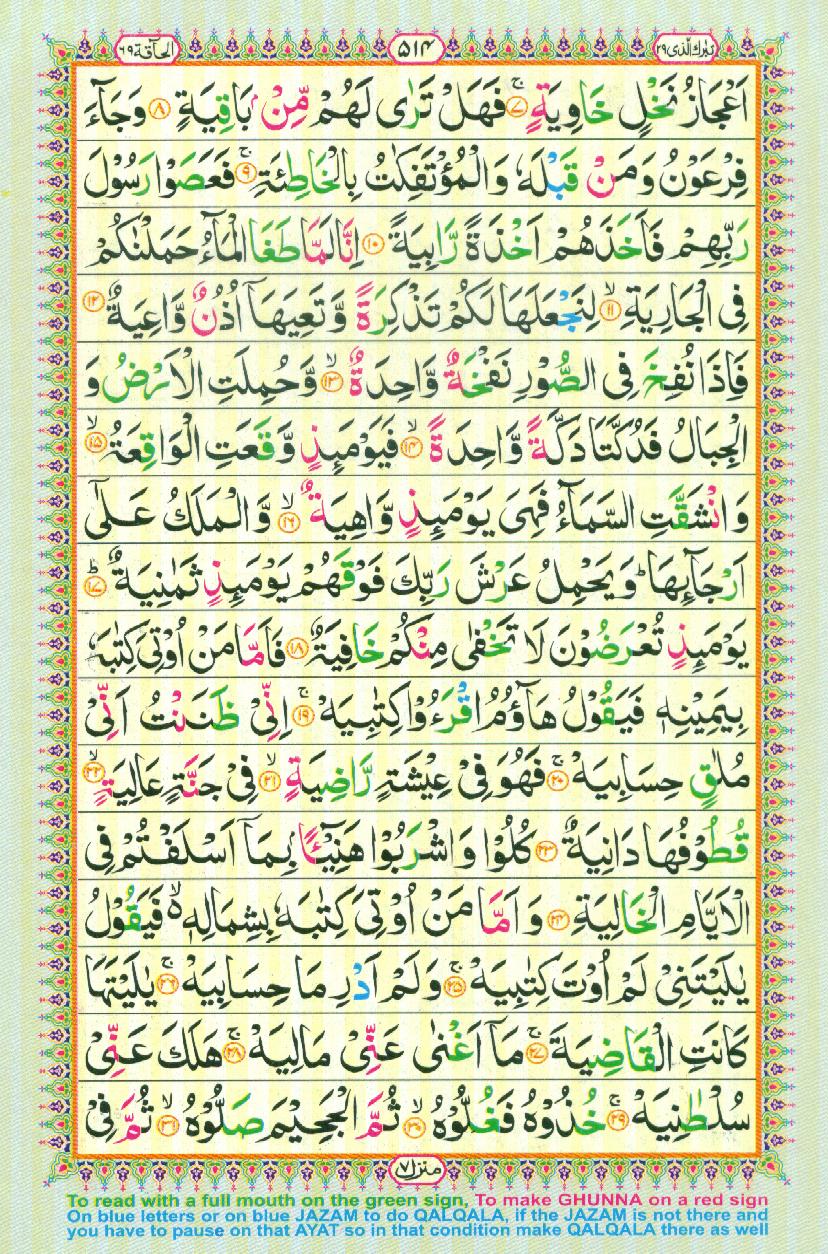 تبرك الذی ٢٩ ۵۱۴ الحآقة ٦٩
اَعْجَازُ نَخْلٍ خَاوِيَةٍ ۚ‏ ﴿۷﴾ فَهَلْ تَرٰى لَهُمْ مِّنْۢ بَاقِيَةٍ ﴿۸﴾ وَجَآءَ
فِرْعَوْنُ وَمَنْ قَبْلَهٗ وَالْمُؤْتَفِكٰتُ بِالْخَاطِئَةِ ۚ‏ ﴿۹﴾ فَعَصَوْا رَسُوْلَ
رَبِّهِمْ فَاَخَذَهُمْ اَخْذَةً رَّابِيَةً ﴿۱۰﴾ اِنَّا لَمَّا طَغَا الْمَآءُ حَمَلْنٰكُمْ
فِى الْجَارِيَةِ ۙ‏ ﴿۱۱﴾ لِنَجْعَلَهَا لَكُمْ تَذْكِرَةً وَّتَعِيَهَاۤ اُذُنٌ وَّاعِيَةٌ ﴿۱۲﴾
فَاِذَا نُفِخَ فِى الصُّوْرِ نَفْخَةٌ وَّاحِدَةٌ ۙ‏ ﴿۱۳﴾ وَّحُمِلَتِ الْاَرْضُ وَ
الْجِبَالُ فَدُكَّتَا دَكَّةً وَّاحِدَةً ۙ‏ ﴿۱۴﴾ فَيَوْمَئِذٍ وَّقَعَتِ الْوَاقِعَةُ ۙ‏ ﴿۱۵﴾
وَانْشَقَّتِ السَّمَآءُ فَهِىَ يَوْمَئِذٍ وَّاهِيَةٌ ۙ‏ ﴿۱۶﴾ وَّالْمَلَكُ عَلٰٓى
اَرْجَآئِهَا ؕ وَيَحْمِلُ عَرْشَ رَبِّكَ فَوْقَهُمْ يَوْمَئِذٍ ثَمٰنِيَةٌ ؕ‏ ﴿۱۷﴾
يَوْمَئِذٍ تُعْرَضُوْنَ لَا تَخْفٰى مِنْكُمْ خَافِيَةٌ ﴿۱۸﴾ فَاَمَّا مَنْ اُوْتِىَ كِتٰبَهٗ
بِيَمِيْنِهٖ فَيَقُوْلُ هَآؤُمُ اقْرَءُوْا كِتٰبِيَهْ ۚ‏ ﴿۱۹﴾ اِنِّىْ ظَنَنْتُ اَنِّىْ
مُلٰقٍ حِسَابِيَهْ ۚ‏ ﴿۲۰﴾ فَهُوَ فِىْ عِيْشَةٍ رَّاضِيَةٍ ۙ‏ ﴿۲۱﴾ فِىْ جَنَّةٍ عَالِيَةٍ ۙ‏ ﴿۲۲﴾
قُطُوْفُهَا دَانِيَةٌ ﴿۲۳﴾ كُلُوْا وَاشْرَبُوْا هَنِيْٓئًۢا بِمَاۤ اَسْلَفْتُمْ فِى
الْاَيَّامِ الْخَالِيَةِ ﴿۲۴﴾ وَاَمَّا مَنْ اُوْتِىَ كِتٰبَهٗ بِشِمَالِهٖ ۙ فَيَقُوْلُ
يٰلَيْتَنِىْ لَمْ اُوْتَ كِتٰبِيَهْ ۚ‏ ﴿۲۵﴾ وَلَمْ اَدْرِ مَا حِسَابِيَهْ ۚ‏ ﴿۲۶﴾ يٰلَيْتَهَا
كَانَتِ الْقَاضِيَةَ ۚ‏ ﴿۲۷﴾ مَاۤ اَغْنٰى عَنِّىْ مَالِيَهْ ۚ‏ ﴿۲۸﴾ هَلَكَ عَنِّىْ
سُلْطٰنِيَهْ ۚ‏ ﴿۲۹﴾ خُذُوْهُ فَغُلُّوْهُ ۙ‏ ﴿۳۰﴾ ثُمَّ الْجَحِيْمَ صَلُّوْهُ ۙ‏ ﴿۳۱﴾ ثُمَّ فِىْ
منزل ۷
To read with a full mouth on the green sign, To make GHUNNA on a red sign
On blue letters or on blue JAZAM to do QALQALA, if the JAZAM is not there and
you have to pause on that AYAT so in that condition make QALQALA there as well